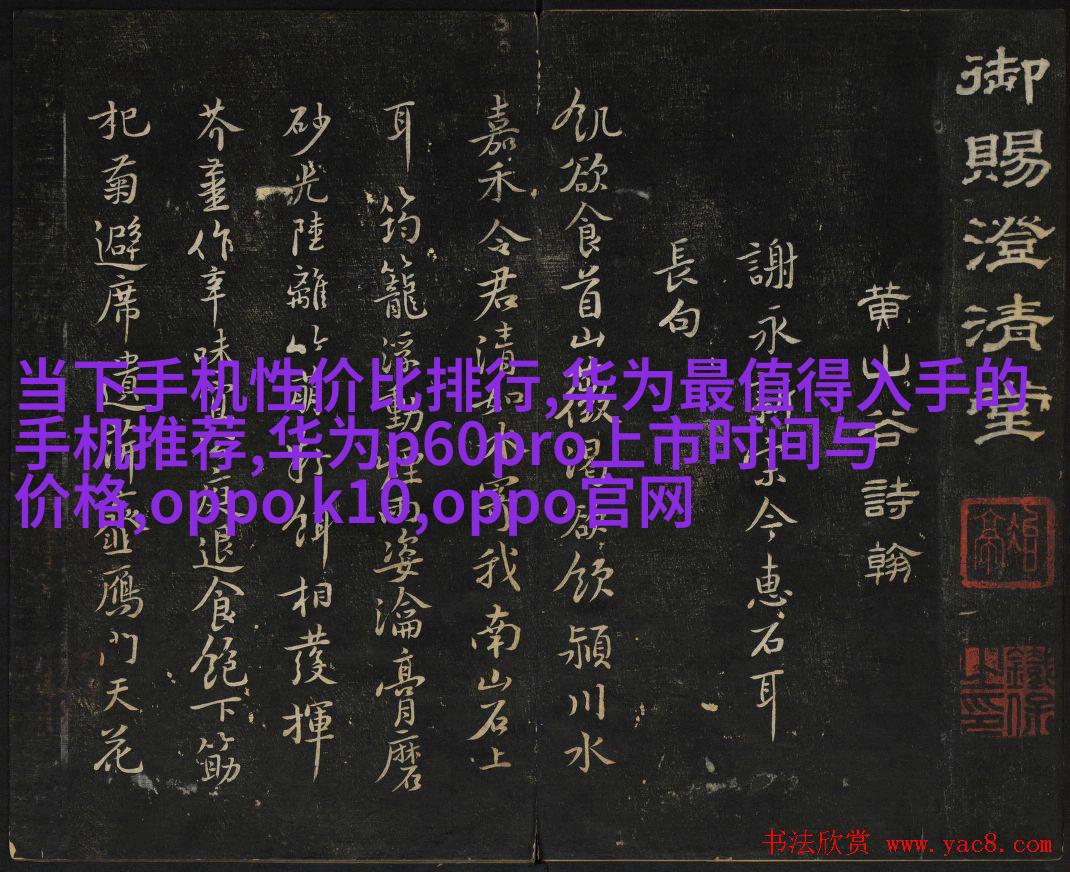 御賜澄清堂
黄山谷詩翰
謝永新宗令惠石耳
長句
飢欲食首山薇渴欲飲潁川水
嘉禾令君清如冰寄我南山石上
耳筠籠浮動烟雨姿瀹膏磨
砂光陸離竹萌粉餌相發揮
芥薑作辛味宜退食飽下筯
杞菊避席遺虀鴈門天花
当下手机性价比排行,华为最值得入手的
手机推荐,华为p60pro上市时间与
价格,oppo k10,oppo官网
书法欣赏 www.yac8.com